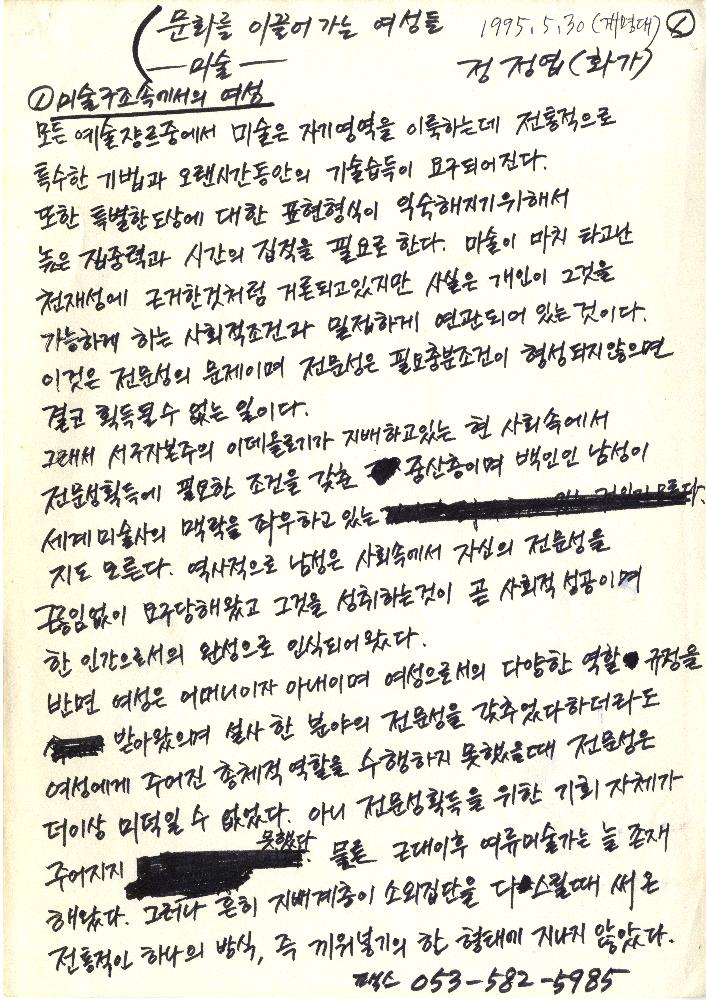 문화를 이끌어 가는 여성들 1995.5.30 (계명대) ①
—미술— 정정엽 (화가)
① 미술구조속에서의 여성
모든 예술쟝르중에서 미술은 자기영역을 이룩하는데 전통적으로
특수한 기법과 오랜시간동안의 기술습득이 요구되어진다.
또한 특별한도상에 대한 표현형식이 익숙해지기위해서
높은 집중력과 시간의 집적을 필요로 한다. 미술이 마치 타고난
천재성에 근거한것처럼 거론되고있지만 사실은 개인이 그것을
가능하게 하는 사회적조건과 밀접하게 연관되어 있는것이다.
이것은 전문성의 문제이며 전문성은 필요충분조건이 형성되지않으면
결코 획득될수 없는 일이다.
그래서 서구자본주의 이데올로기가 지배하고있는 현 사회속에서
전문성획득에 필요한 조건을 갖춘 중산층이며 백인인 남성이
세계미술사의 맥락을 좌우하고 있는
지도 모른다. 역사적으로 남성은 사회속에서 자신의 전문성을
끊임없이 요구당해왔고 그것을 성취하는것이 곧 사회적 성공이며
한 인간으로서의 완성으로 인식되어왔다.
반면 여성은 어머니이자 아내이며 여성으로서의 다양한 역할 규정을
받아왔으며 설사 한 분야의 전문성을 갖추었다하더라도
여성에게 주어진 총체적역할을 수행하지 못했을때 전문성은
더이상 미덕일 수 없었다. 아니 전문성획득을 위한 기회 자체가
주어지지 못했다. 물론 근대이후 여류미술가는 늘 존재
해왔다. 그러나 흔히 지배계층이 소외집단을 다스릴때 써온
전통적인 하나의 방식, 즉 끼워넣기의 한 형태에 지나지 않았다.
팩스 053-582-5985